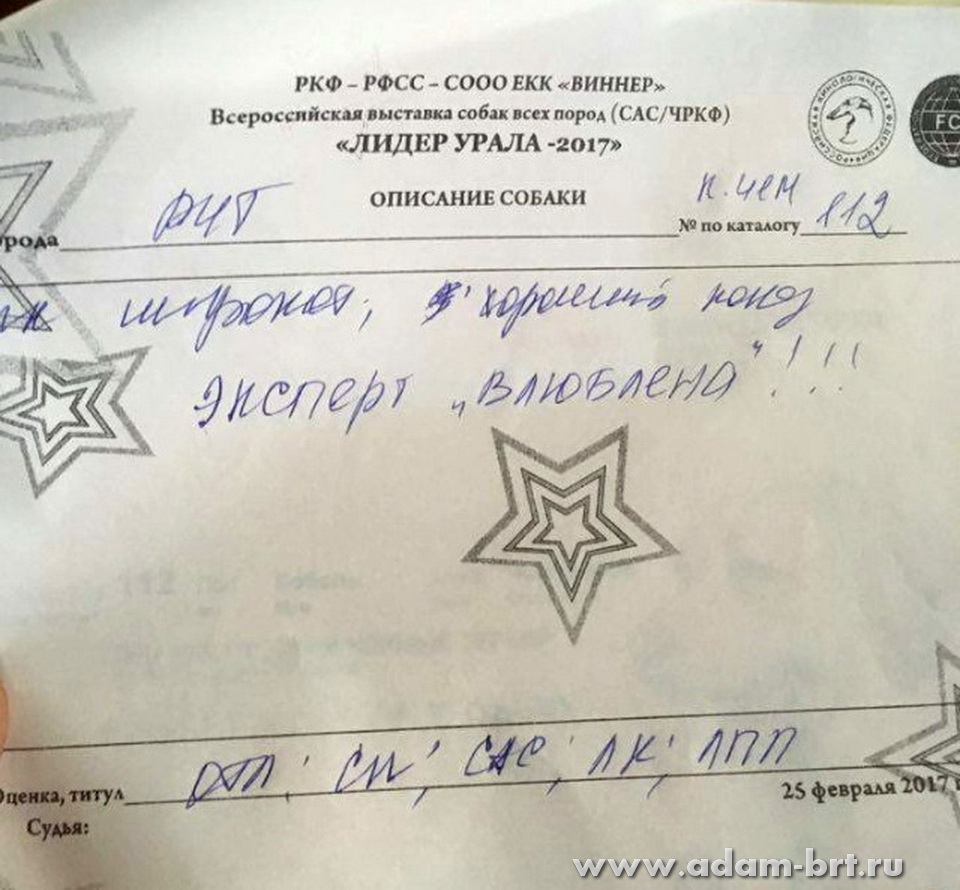 РКФ – РФСС – СООО ЕКК «ВИННЕР»
Всероссийская выставка собак всех пород (САС/ЧРКФ)
«ЛИДЕР УРАЛА -2017»
ОПИСАНИЕ СОБАКИ
к. чем
рода РЧТ № по каталогу 112
широкая, хороший показ
Эксперт „Влюблена"!!!
Оценка, титул ОТЛ, CW, САС, ЛК, ЛПП 25 февраля 2017 г
Судья:
РОССИЙСКАЯ КИНОЛОГИЧЕСКАЯ ФЕДЕРАЦИЯ
FC
www.adam-brt.ru